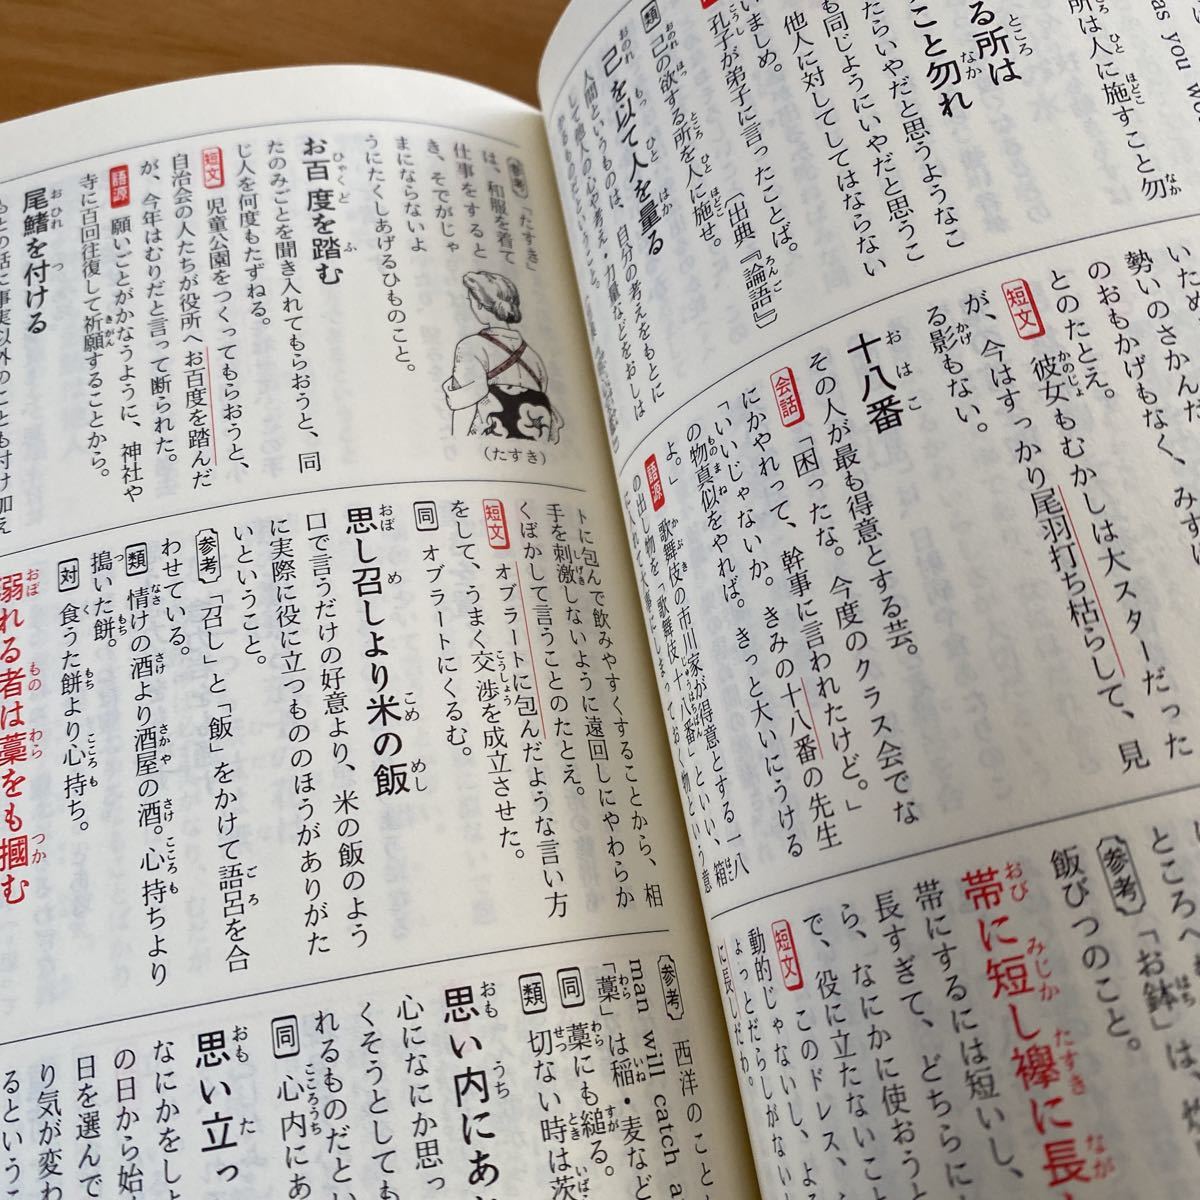 as you wo
所は人に施すこと勿
る所は
こと勿れ
たらいやだと思うようなこ
も同じようにいやだと思うこ
他人に対してしてはならない
いましめ。
孔子が弟子に言ったことば。
〔出典『論語』〕
類 己の欲する所を人に施せ。
己を以て人を量る
人間というものは、自分の考えをもとに
して他人の心や考え・力量などをおしは
いため
勢いのさかんな
のおもかげもなく、みす
とのたとえ。
短文 彼女もむかしは大スターだった
が、今はすっかり尾羽打ち枯らして、見
る影もない。
十八番
その人が最も得意とする芸。
会話 「困ったな。今度のクラス会でな
にかやれって、幹事に言われたけど。」
「いいじゃないか。きみの十八番の先生
の物真似をやれば。きっと大いにうける
よ。」
語源 歌舞伎の市川家が得意とする一八
の出し物を「歌舞伎十八番」といい、箱
に入れて大事にしまっておく物という意
ところへ
参考 「お鉢」は、
飯びつのこと。
帯に短し襷に長
帯にするには短いし、
長すぎて、どちらに
ら、なにかに使おうと
で、役に立たないこ
短文 このドレス、
動的じゃないし、よ
ょっとだらしがない
に長しだわ。
参考 「たすき」
は、和服を着て
仕事をすると
き、そでがじゃ
まにならないよ
うにたくしあげるひものこと。
(たすき)
お百度を踏む
たのみごとを聞き入れてもらおうと、同
じ人を何度もたずねる。
短文 児童公園をつくってもらおうと、
自治会の人たちが役所へお百度を踏んだ
が、今年はむりだと言って断られた。
語源 願いごとがかなうように、神社や
寺に百回往復して祈願することから。
尾鰭を付ける
もとの話に事実以外のことも付け加え
トに包んで飲みやすくすることから、相
手を刺激しないように遠回しにやわらか
くぼかして言うことのたとえ。
短文 オブラートに包んだような言い方
をして、うまく交渉を成立させた。
同 オブラートにくるむ。
思し召しより米の飯
口で言うだけの好意より、米の飯のよう
に実際に役に立つもののほうがありがた
いということ。
参考 「召し」と「飯」をかけて語呂を合
わせている。
類 情けの酒より酒屋の酒。心持ちより
搗いた餅。
対 食うた餅より心持ち。
溺れる者は藁をも摑む
参考 西洋のこと
man will catch a
「藁」は稲・麦など
同 藁にも縋る。
類 切ない時は茨
思い内にあ
心になにか思っ
くそうとしても
れるものだとい
同 心内にあ
思い立っ
なにかをし
の日から始
日を選んで
り気が変わ
るというこ